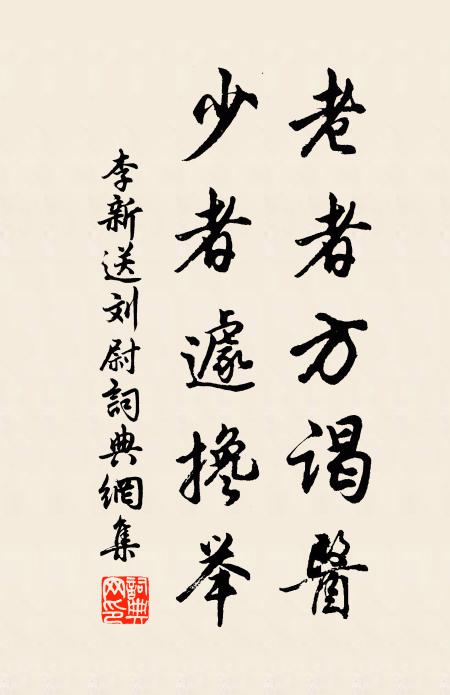 老者方谒醫
少者遽搀举
李新送刘尉詞典網集
詞典网印